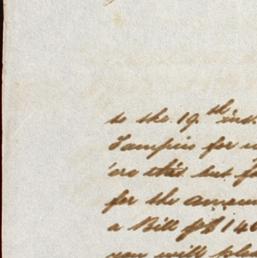 to the 19th inst.
Tampin for
ere this but
for the amoun
a Bill for $ 14
you will plea